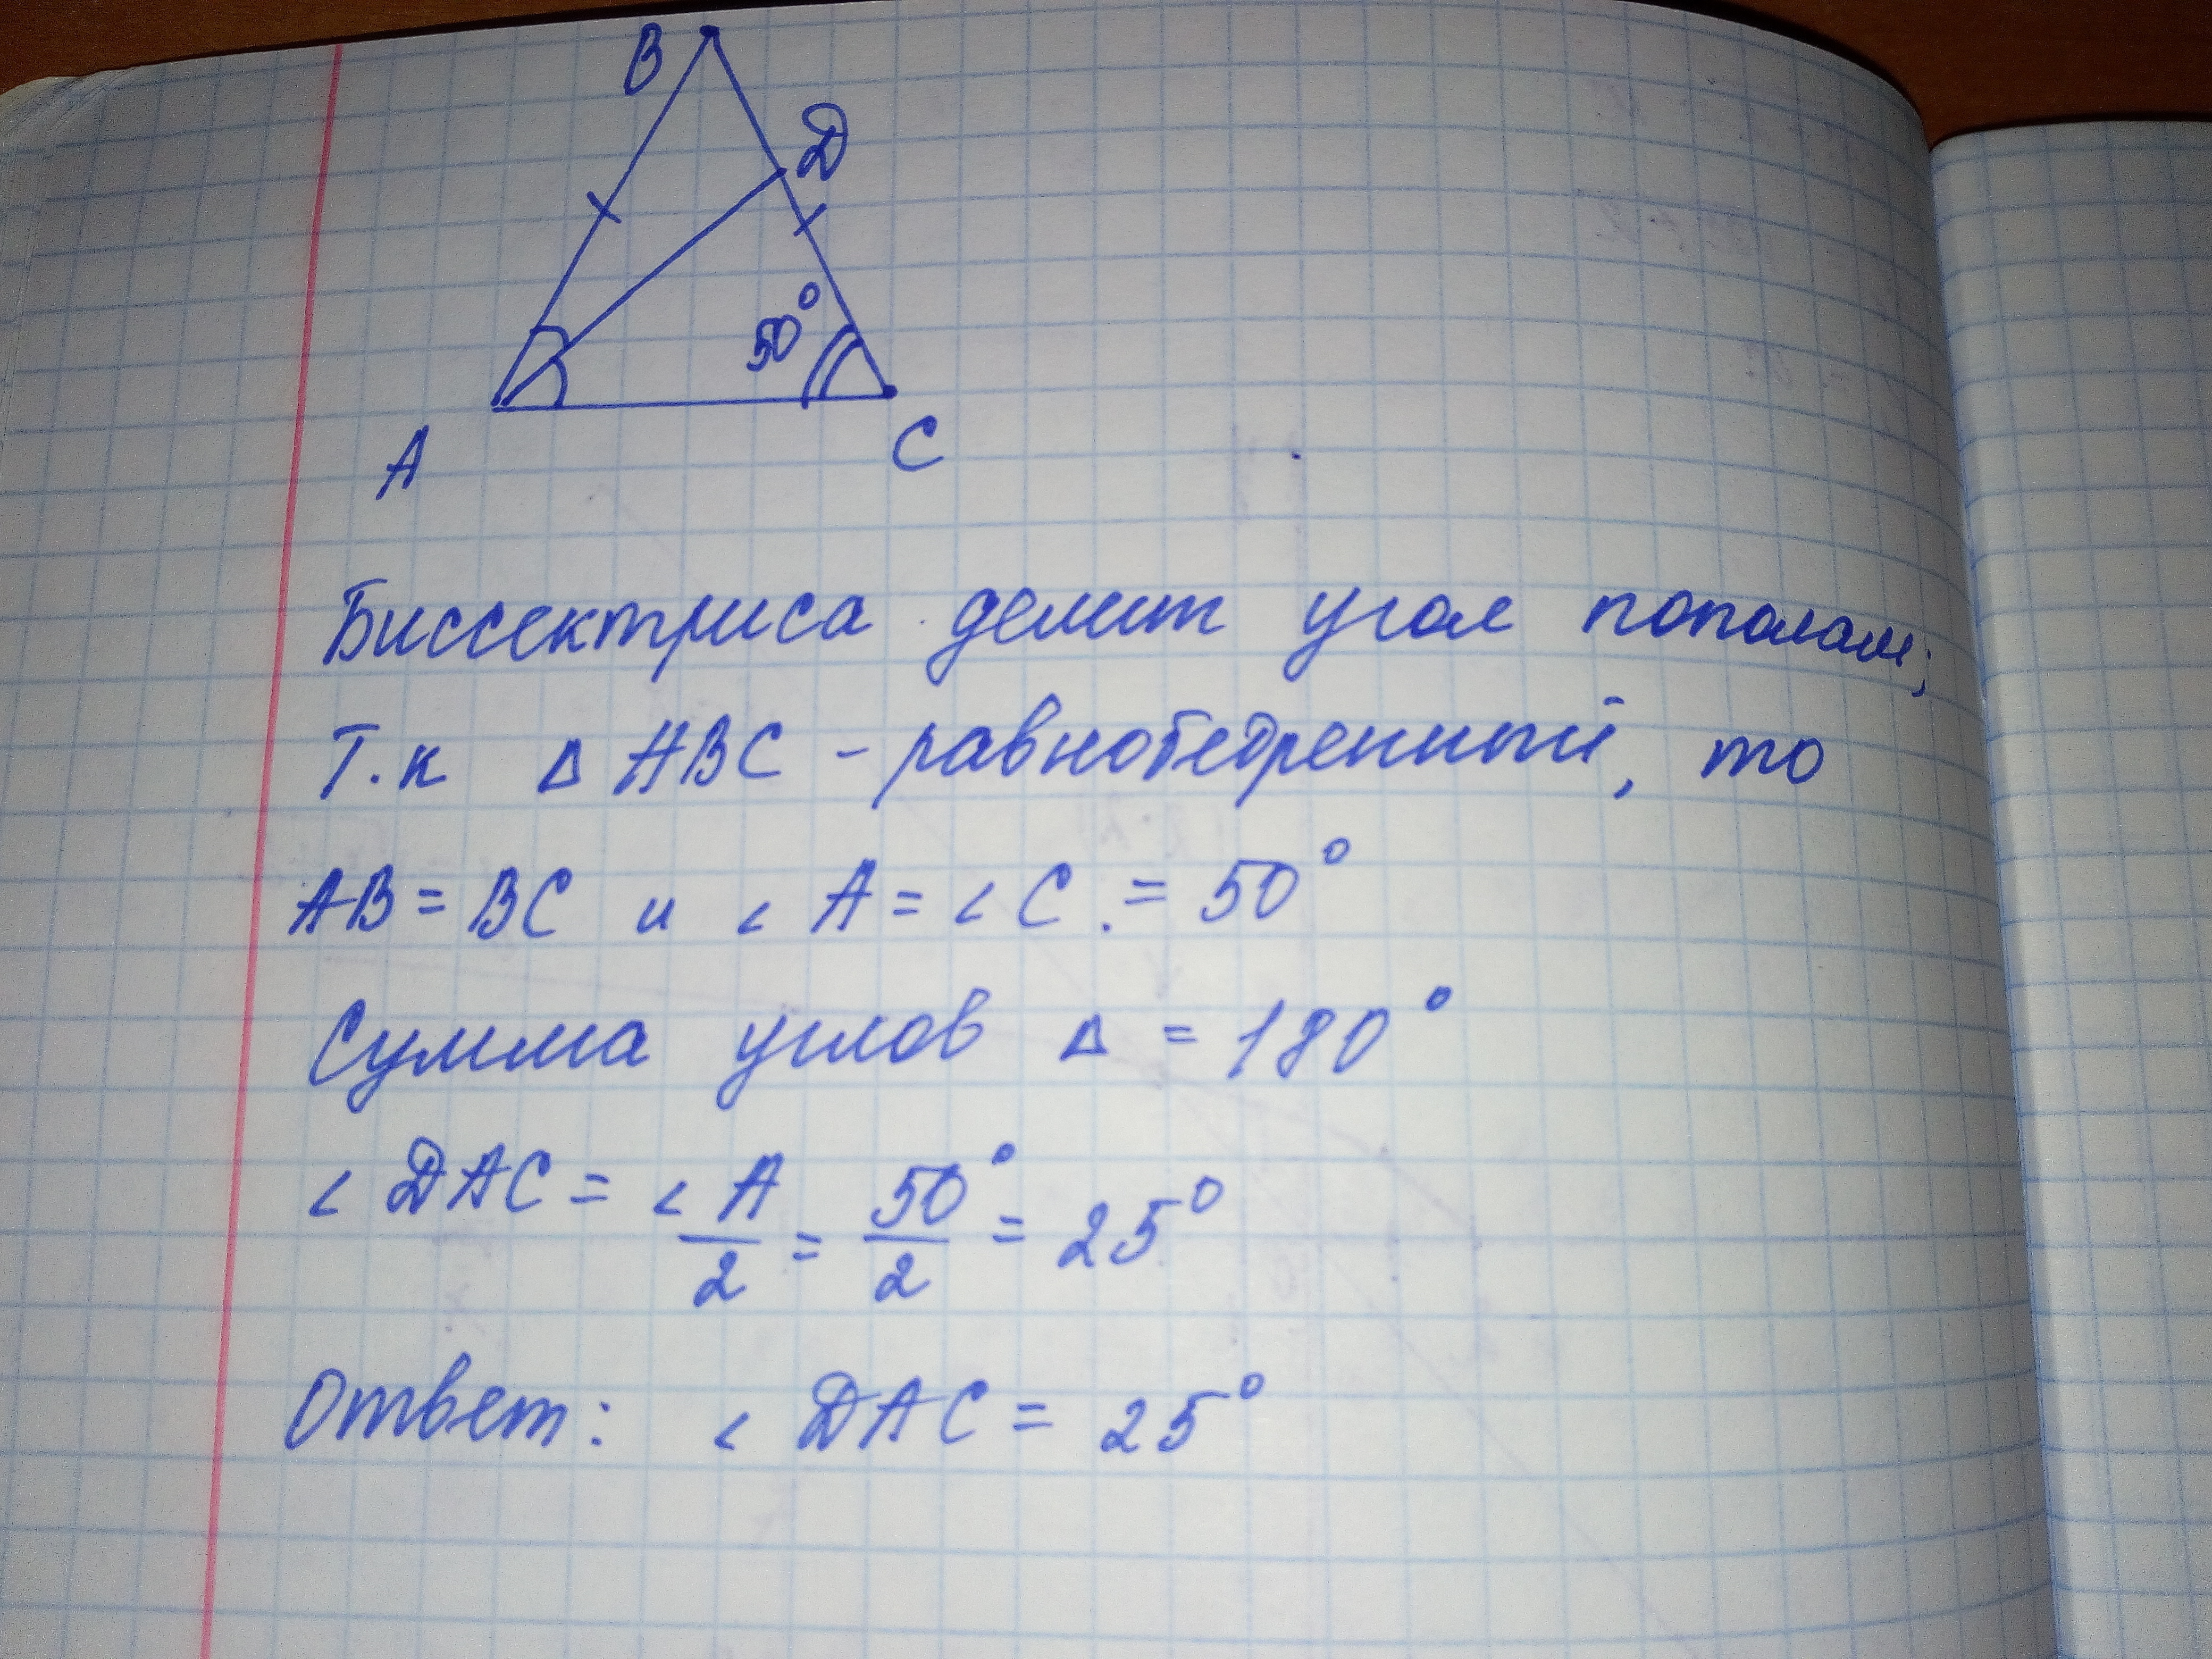 B
D
50°
A
C
Биссектриса делит угол пополам;
Т.к Δ ABC - равнобедренный, то
AB = BC и ∠ A = ∠ C = 50°
Сумма углов Δ = 180°
∠ DAC = ∠ A/2 = 50°/2 = 25°
Ответ: ∠ DAC = 25°